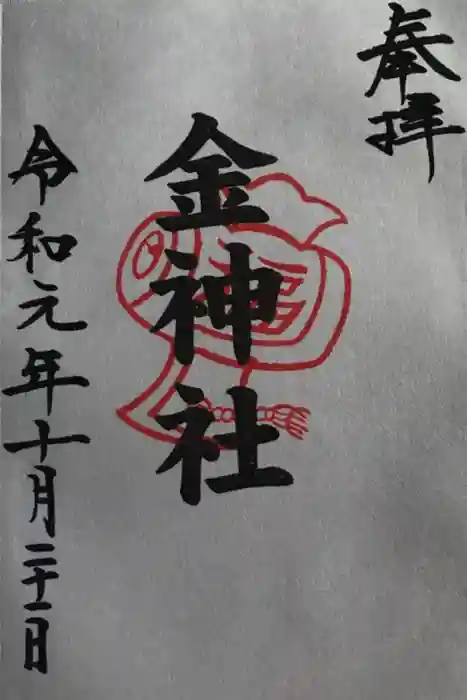 奉拝
金神社
令和元年十月二十一日